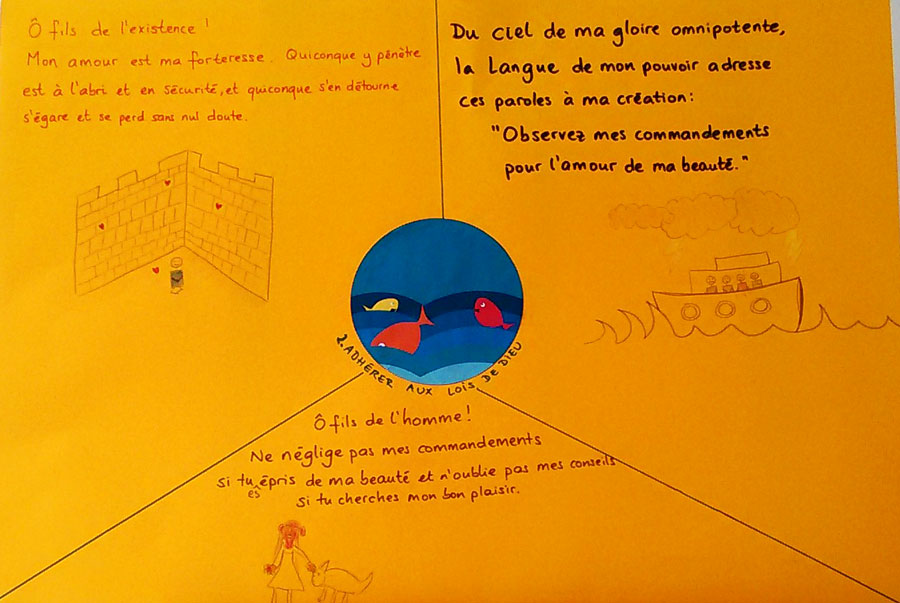 Ô fils de l'existence !
Mon amour est ma forteresse. Quiconque y pénètre
est à l'abri et en sécurité, et quiconque s'en détourne
s'égare et se perd sans nul doute.
Du ciel de ma gloire omnipotente,
la Langue de mon pouvoir adresse
ces paroles à ma création :
"Observez mes commandements
pour l'amour de ma beauté."
2. ADHÉRER AUX LOIS DE DIEU
Ô fils de l'homme !
Ne néglige pas mes commandements
si tu es épris de ma beauté et n'oublie pas mes conseils
si tu cherches mon bon plaisir.